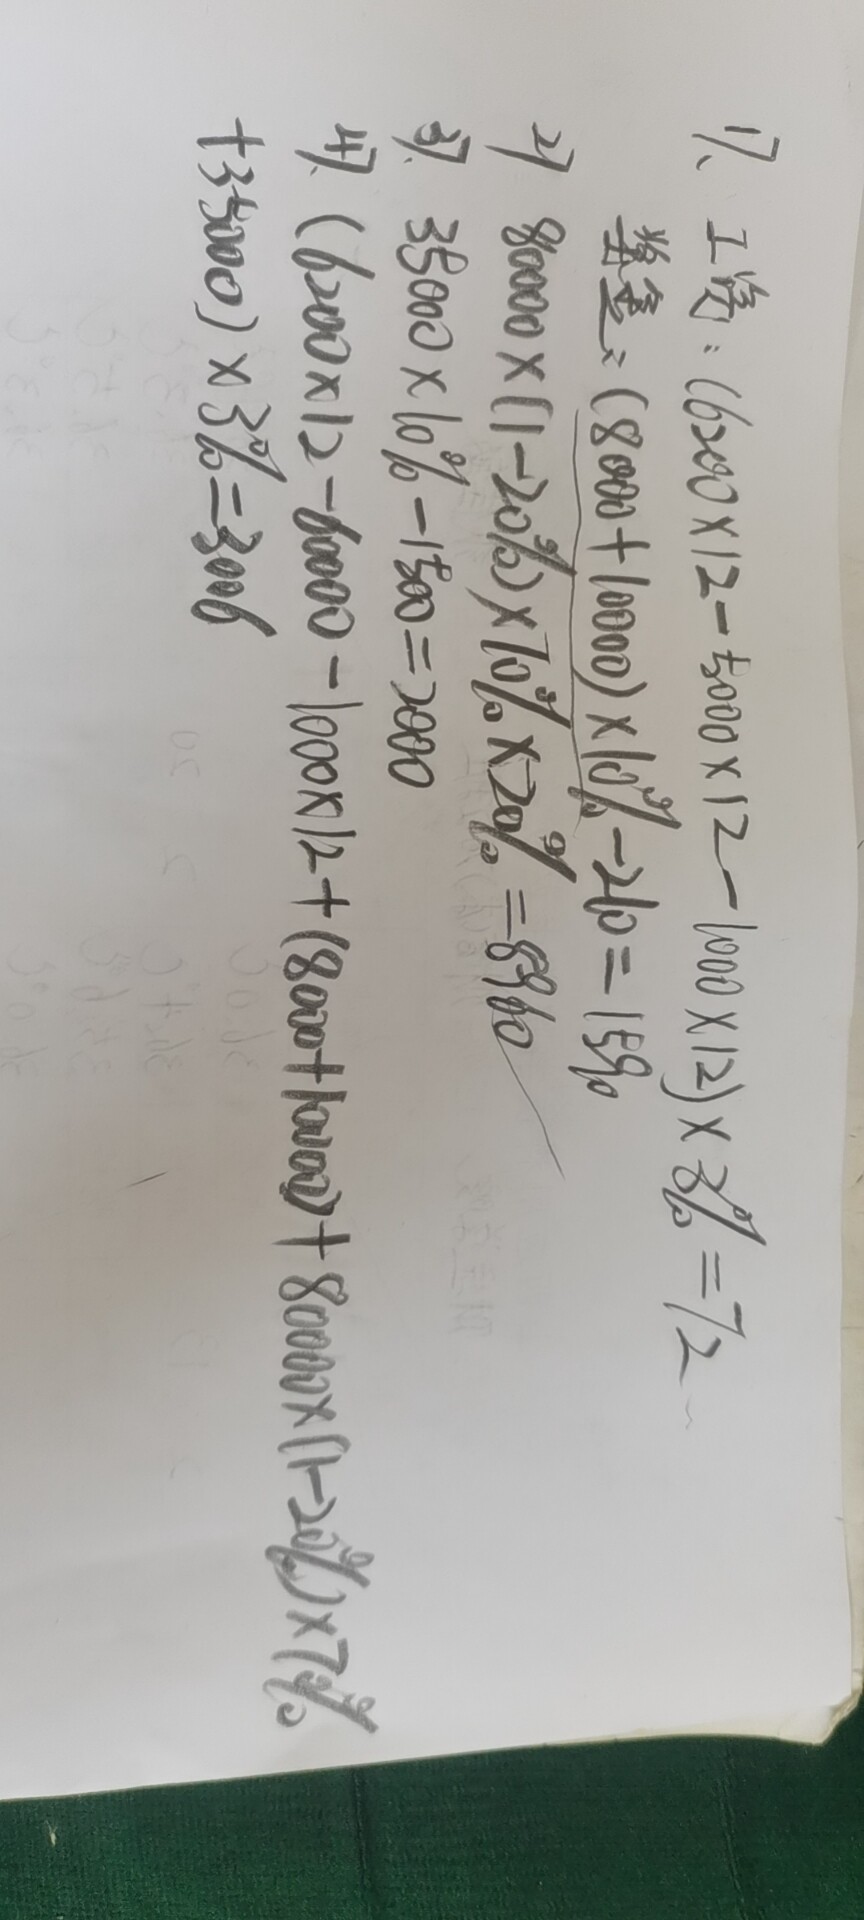 1)、工资:(6200×12-5000×12-1000×12)×3%=72
奖金:(8000+10000)×10%-210=1590
2) 80000×(1-20%)×70%×20%=8960
3)、35000×10%-1500=2000
4)、(6200×12-60000-1000×12+(8000+10000)+80000×(1-20%)×70%
+35000)×3%=3006